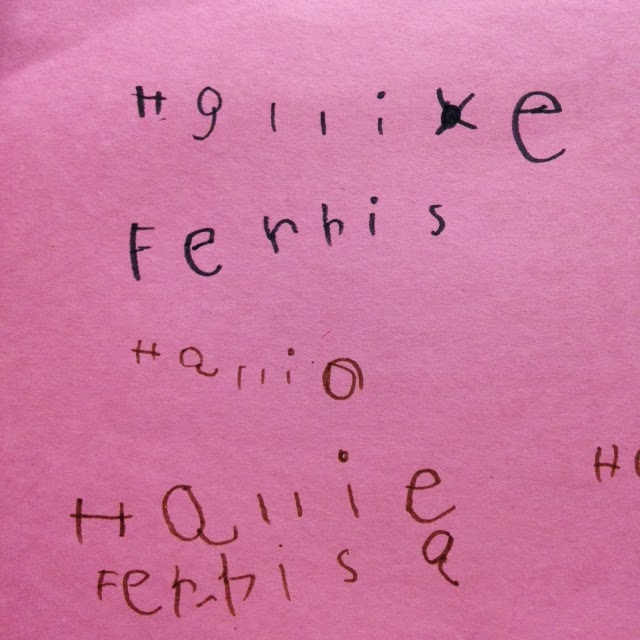 Hallixe
Ferris
Hallia
Hallie
H
Ferris a